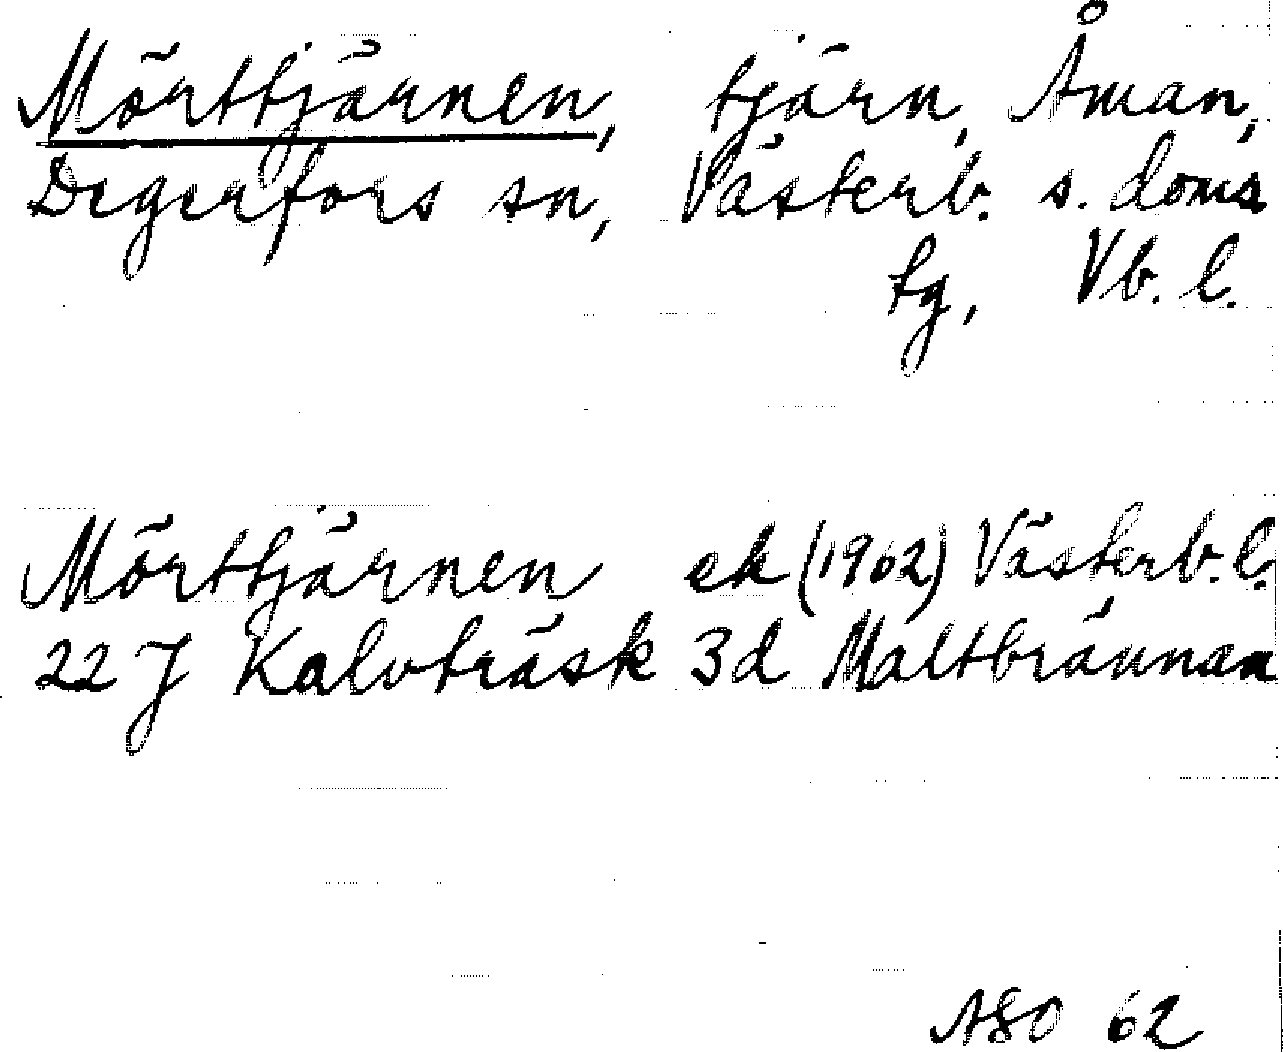 Mörttjärnen, tjärn, Åman,
Degerfors sn, Västerb. s. doms
tg, Vb. l.
Mörttjärnen ek (1962) Västerb. l.
22 J Kalvträsk 3d Maltbrännan
ASO 62